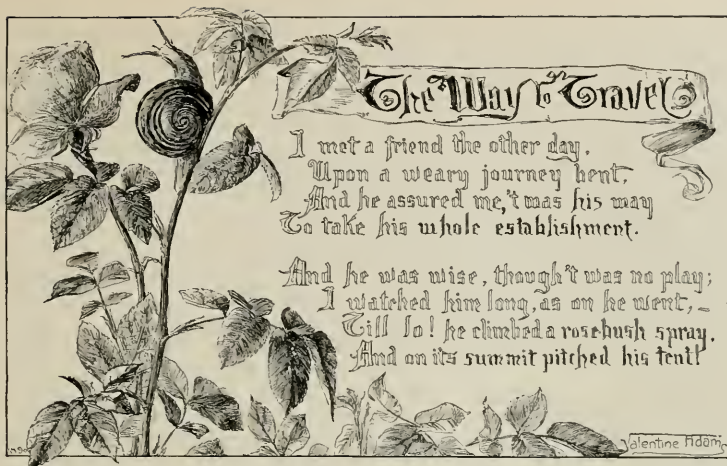 The Way to Travel
I met a friend the other day,
Upon a weary journey bent,
And he assured me, 't was his way
To take his whole establishment.
And he was wise, though 't was no play;
I watched him long, as on he went,–
Till lo! he climbed a rosebush spray,
And on its summit pitched his tent!
Valentine Adams